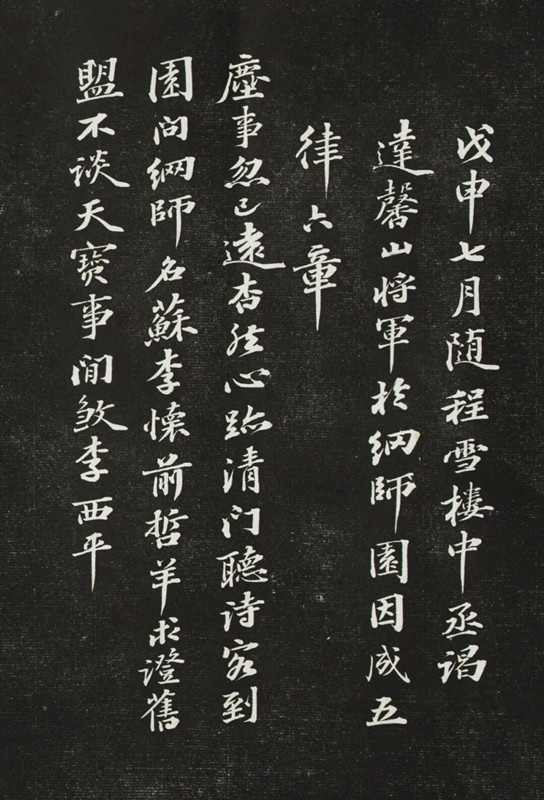 戊申七月随程雪樓中丞謁
達馨山將軍於網師園因成五
律六章
塵事忽已遠杳然心跡清门聽诗客到
園问網師名蘇李懷前哲羊求證舊
盟不談天寶事閒煞李西平